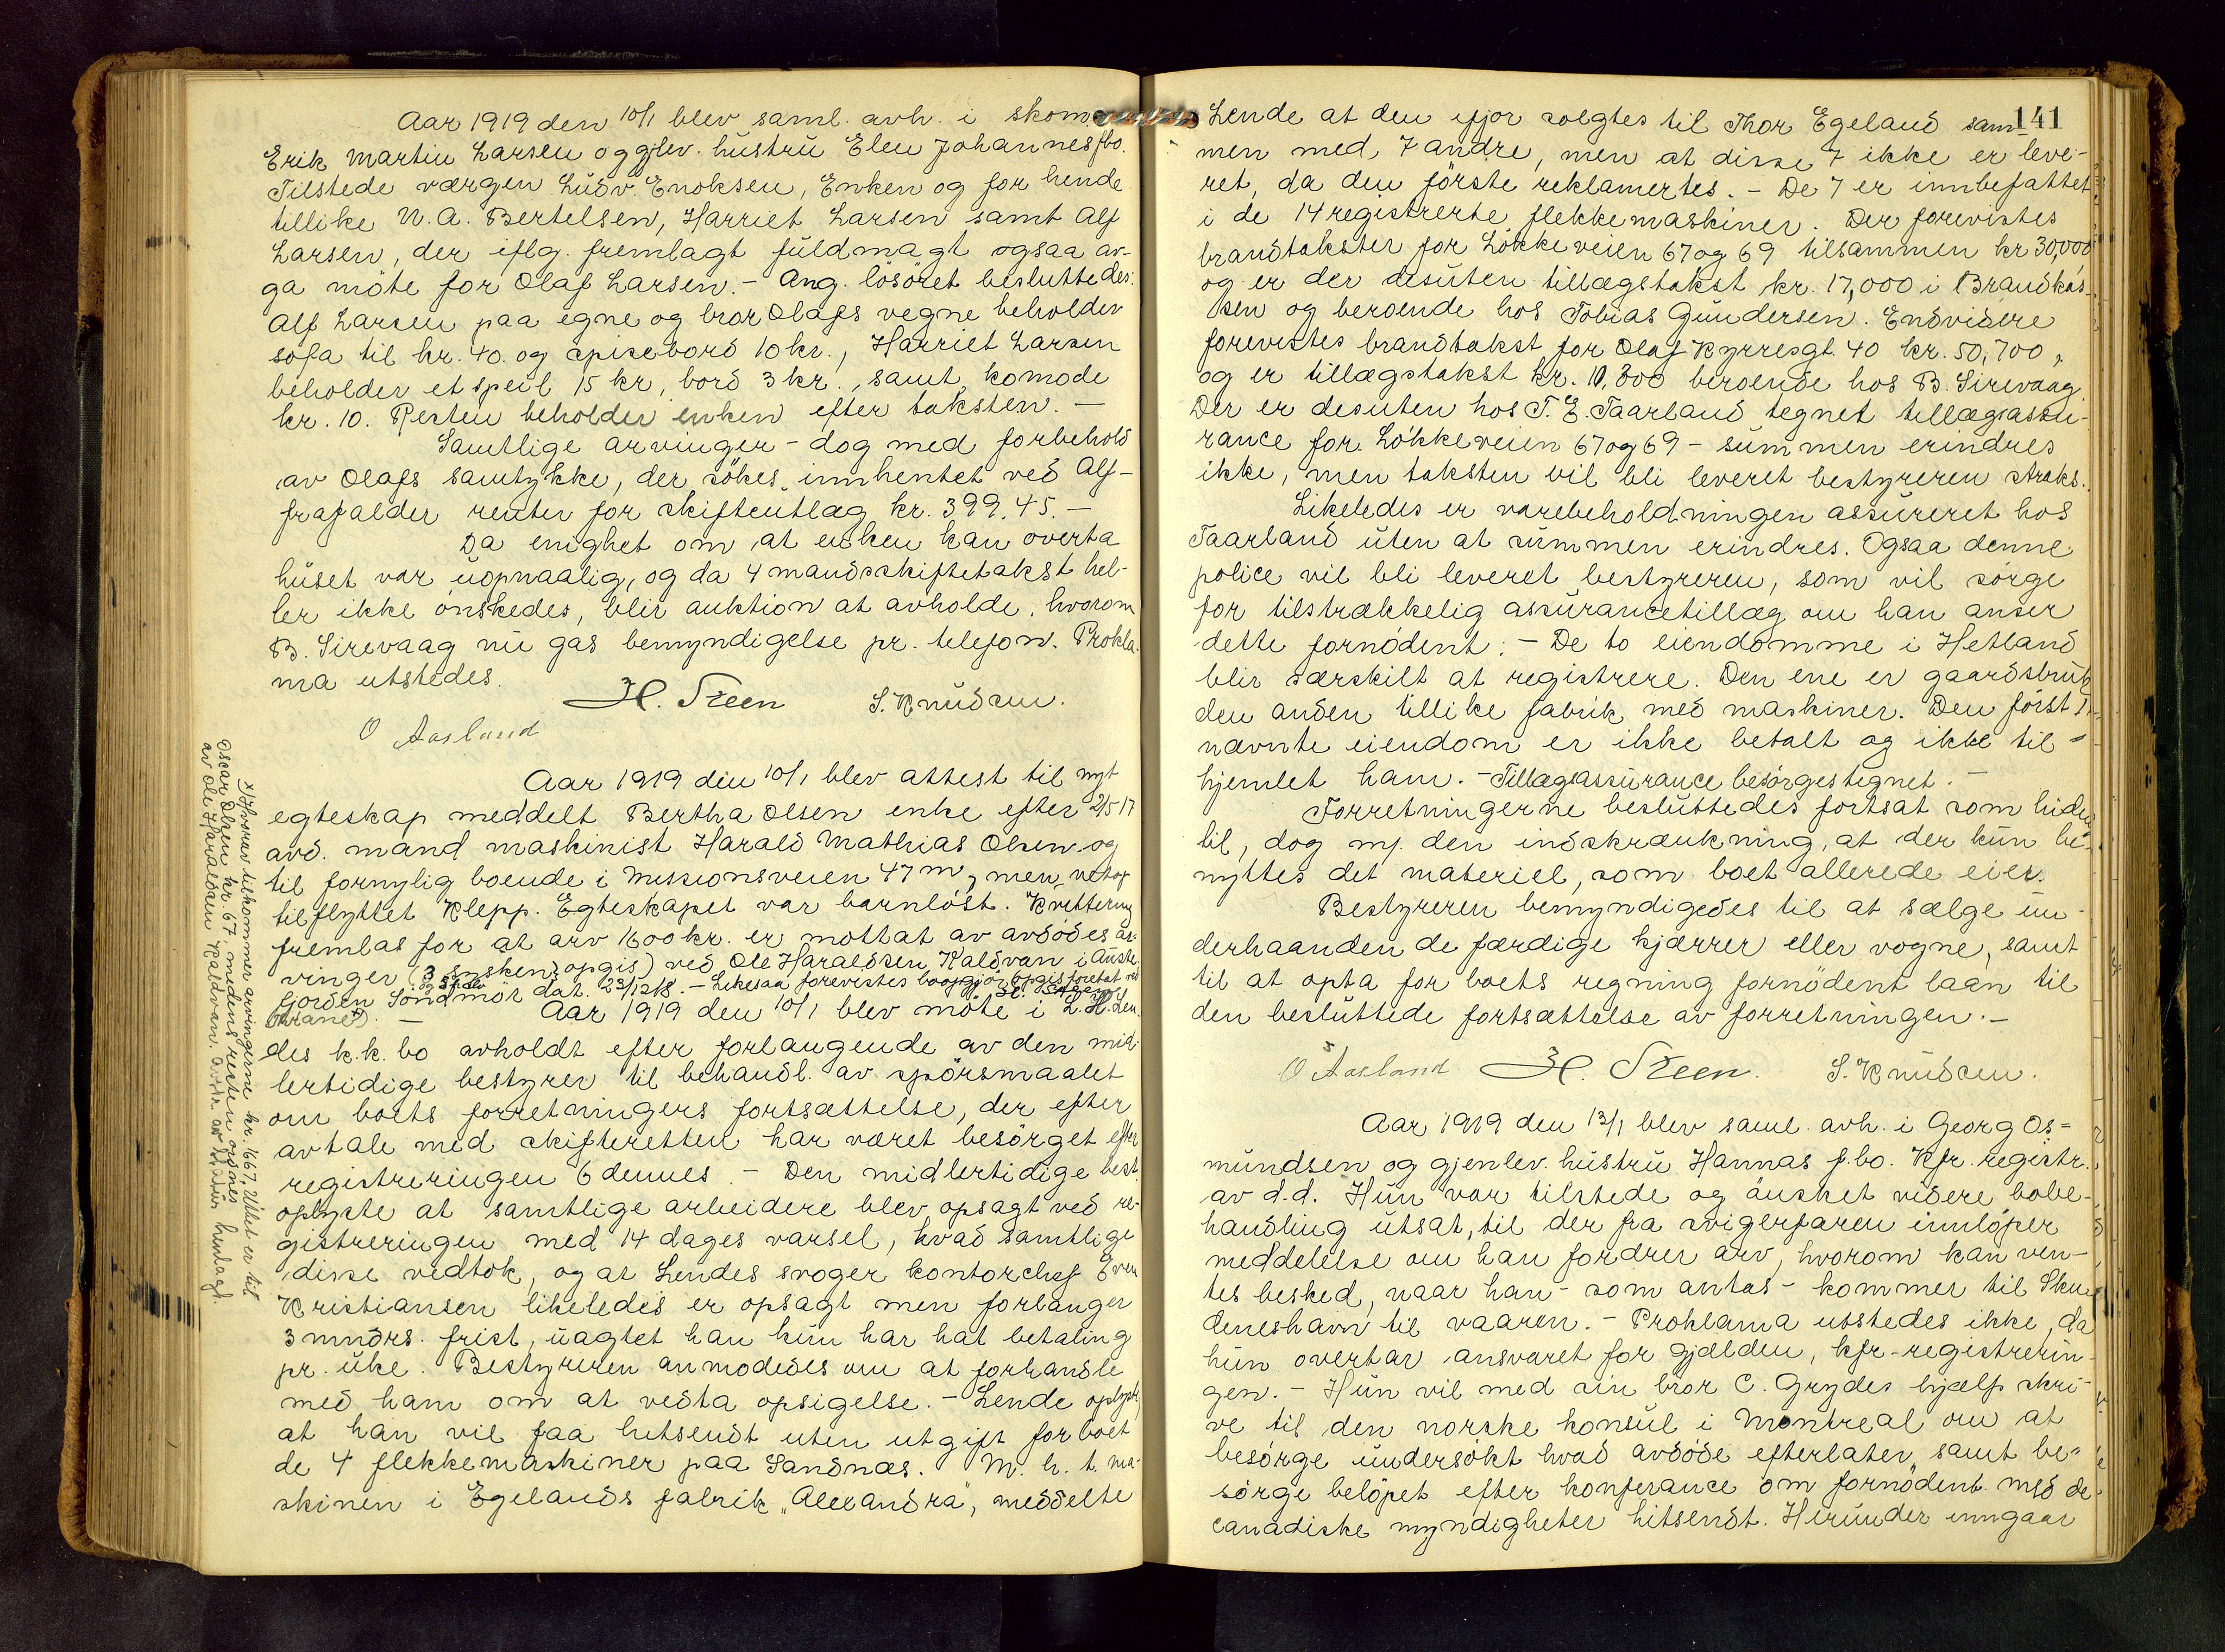 Aar 1919 den 10/1 blev saml. avh. i skom.
Erik Martin Larsen og gjlev. hustru Elen Johannes fbo.
Tilstede værgen Ludv. Enoksen, Enken og for hende
tillike N. A. Bertelsen, Harriet Larsen samt Alf
Larsen, der iflg. fremlagt fuldmagt ogsaa av-
ga möte for Olaf Larsen. - Ang. lösöret besluttedes:
Alf Larsen paa egne og bror Olafs vegne beholder
sofa til kr. 40. og spisebord 10 kr., Harriet Larsen
beholder et speil 15 kr, bord 3 kr., samt komode
kr. 10. Resten beholder enken efter taksten. -
Samtlige arvinger - dog med forbehold
av Olafs samtykke, der sökes innhentet ved Alf -
frafalder renter for skifteutlæg kr. 399.45. -
Da enighet om at enken kan overta
huset var uopnaalig, og da 4 mandsskiftetakst hel-
ler ikke önskedes, blir auktion at avholde, hvorom
B. Sirevaag nu gas bemyndigelse pr. telefon. Prokla-
ma utstedes.
H. Steen S. Knudsen.
O Aasland
Aar 1919 den 10/1 blev attest til nyt
egteskap meddelt Bertha Olsen enke efter 2/5 17
avd. mand maskinist Harald Mathias Olsen og
til fornylig boende i Missionsveien 47 m, men netop
tilflyttet Klepp. Egteskapet var barnlöst. Kvittering
fremlas for at arv 1600 kr. er mottat av avdödes ar-
vinger (3 sysken opgis) ved Ole Haraldsen Kaldvan i Auste
fjorden Söndmör dat. 23/12 18. - Likesaa forevistes boopgjör opgis foretat ved
Aar 1919 den 10/1 blev möte i L. H. Len-
des k.k. bo avholdt efter forlangende av den mid-
lertidige bestyrer til behandl. av spörsmaalet
om boets forretningers fortsættelse, der efter
avtale med skifteretten har været besörget efter
registreringen 6 dennes. - Den midlertidige best.
oplyste at samtlige arbeidere blev opsagt ved re-
gistreringen med 14 dages varsel, hvad samtlige
disse vedtok, og at Lendes svoger kontorchef
Kristiansen likeledes er opsagt men forlanger
3 mndrs. frist, uagtet han kun har hat betaling
pr. uke. Bestyreren anmodedes om at forhandle
med ham om at vedta opsigelse. - Lende oplyste
at han vil faa hitsendt uten utgift for boet
de 4 flekkemaskiner paa Sandnæs. M. h. t. ma-
skinen i Egelands fabrik "Alexandra", meddelte
x) Hvorav tilkommer arvingerne kr. 1667, Uttat er kit
Oscar Olsen kr. 67. medens resten ordnes
av Ole Haraldsen Kaldvan.
141
Lende at den ifjor solgtes til Thor Egeland sam-
men med 7 andre, men at disse 7 ikke er leve-
ret, da den förste reklamertes. - De 7 er innbefattet
i de 14 registrerte flekkemaskiner. Der forevistes
brandtakster for Lökkeveien 67 og 69 tilsammen kr 30,000
og er der desuten tillægstakst kr. 17,000 i Brandkas-
sen og beroende hos Tobias Gundersen. Endvidere
forevistes brandtakst for Olaf Kyrresgt. 40 kr. 50,700,
og er tillægstakst kr. 10,800 beroende hos B. Sirevaag.
Der er desuten hos T. E. Taarland tegnet tillægsassu-
rance for Lökkeveien 67 og 69 - summen erindres
ikke, men taksten vil bli leveret bestyreren straks.
Likeledes er varebeholdningen assureret hos
Taarland uten at summen erindres. Ogsaa denne
police vil bli leveret bestyreren, som vil sörge
for tilstrækkelig assurancetillæg om han anser
dette fornödent. - De to eiendomme i Hetland
blir særskilt at registrere. Den ene er gaardsbruk
den anden tillike fabrik med maskiner. Den först-
nævnte eiendom er ikke betalt og ikke til-
hjemlet ham. - Tillægsassurance besörges tegnet. -
Forretningerne besluttedes fortsat som hidin-
til, dog m/. den indskrænkning, at der kun be-
nyttes det materiel, som boet allerede eier.
Bestyreren bemyndigedes til at sælge un-
derhaanden de færdige kjærrer eller vogne, samt
til at opta for boets regning fornödent laan til
den besluttede fortsættelse av forretningen. -
O Aasland H. Steen. S. Knudsen.
Aar 1919 den 13/1 blev saml. avh. i Georg Os-
mundsen og gjenlev. hustru Hannas f.bo. Kfr. registr.
av d.d. Hun var tilstede og önsket videre bobe-
handling utsat, til der fra svigerfaren innlöper
meddelelse om han fordrer arv, hvorom kan ven-
tes besked, naar han - som antas - kommer til Sku-
deneshavn til vaaren. - Proklama utstedes ikke, da
hun overtar ansvaret for gjælden, kfr. registrerin-
gen. - Hun vil med sin bror C. Grydes hjælp skri-
ve til den norske konsul i Montreal om at
besörge undersökt hvad avdöde efterlater, samt be-
sörge belöpet efter konferance om fornödent med de
canadiske myndigheter hitsendt. Herunder inngaar